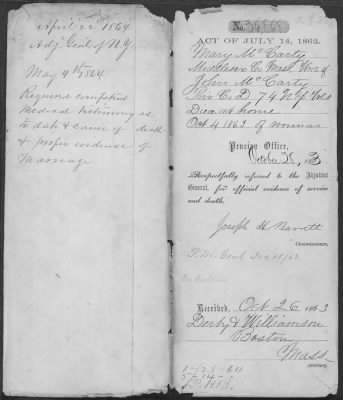 April 22 1864
Adj Genl of N.Y.
May 4th 1864
Require competent
Medical testimony as
to date & cause of death
& proper evidence of
Marriage.
No 36868
ACT OF JULY 14, 1862.
Mary McCarty
Middlesex Co Mass, Wid. of
John McCarty
Priv Co D 74 N.Y. Vols
Died at home
Oct 4 1863 of wounds
Pension Office,
October 28, 1863
Respectfully referred to the Adjutant
General, for official evidence of service
and death.
Joseph H Barrett
Commissioner.
Received, Oct 26 1863
Derby & Williamson
Boston
Mass
Attorney.